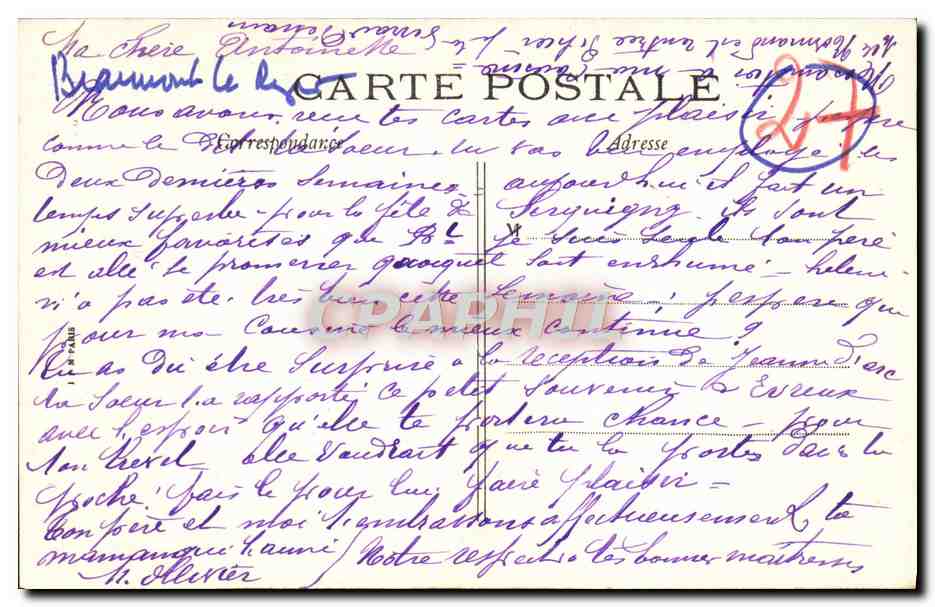 Ma chère Antoinette
Beaumont le Roger
CARTE POSTALE
27
Nous avons reçu tes cartes avec plaisir
Correspondance
Adresse
comme le ta soeur, tu as bien employé les
deux dernières semaines aujourd'hui il fait un
temps superbe - pour la fête de Serquigny ils sont
mieux favorisés que Bt Je suis seule ton père
M
est allé se promener quoiqu'il soit enrhumé - helene
n'a pas été très bien cette semaine, j'espère que
CPARHUI
pour ma cousine le mieux continue ?
PARIS
tu as dû être surprise à la reception de Jeanne d'arc
ta soeur t'a rapporté ce petit souvenir d'Evreux
avec l'espoir qu'elle te portera chance - pour
ton brevet elle voudrait que tu la portes dans ta
poche! fais le pour lui faire plaisir =
ton père et moi t'embrassons affectueusement, ta
maman qui t'aime Notre respect à tes bonnes maîtresses